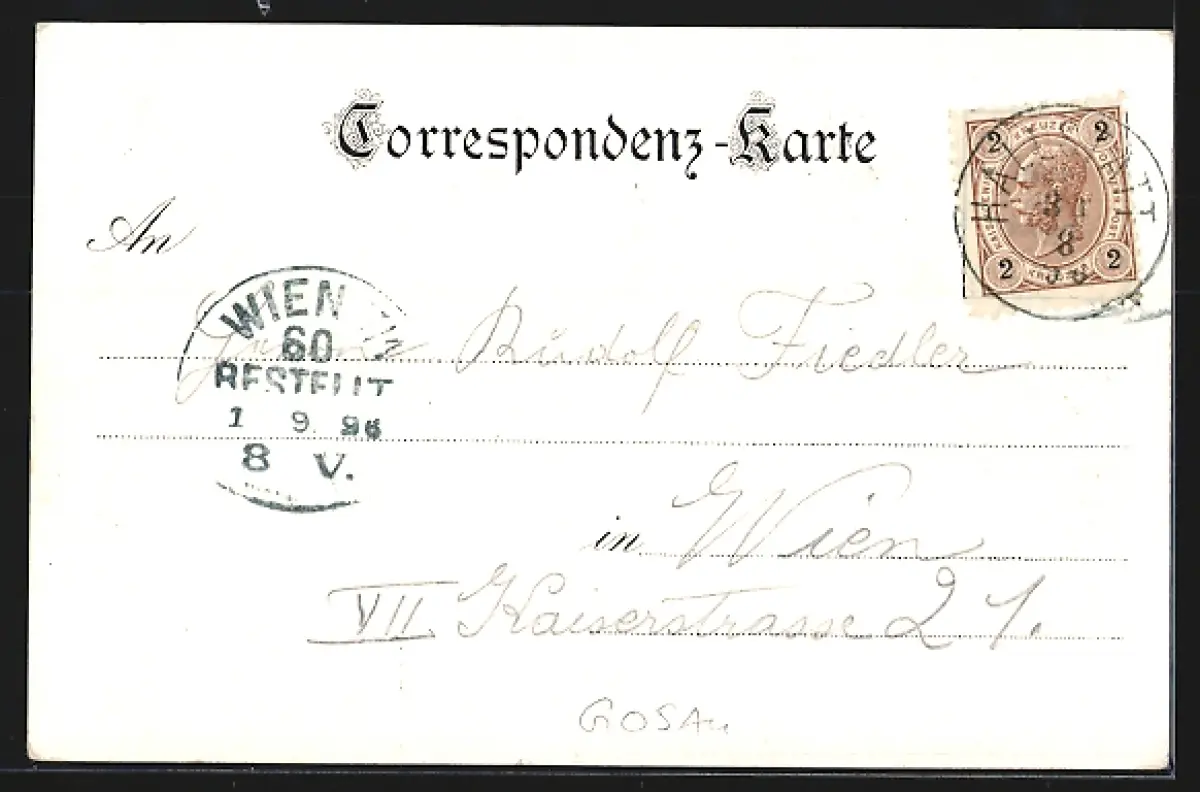 Correspondenz-Karte
2 2
HALLSTATT
31
8
2 2
An
WIEN
60
BESTELLT
1 9. 96
8 V.
Rudolf Fiedler
in Wien
VII. Kaiserstrasse 21.
GOSAU